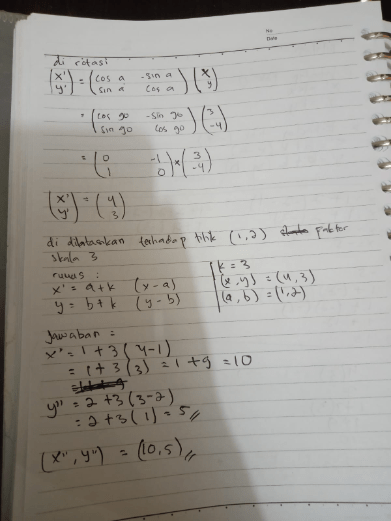 No
Date
di rotasi
(x' y') = (cos a -sin a sin a cos a) (x y)
= (cos 90 -sin 90 sin 90 cos 90) (3 -4)
= (0 -1 1 0) * (3 -4)
(x' y') = (4 3)
di dilatasikan terhadap titik (1,2) faktor
skala 3
rumus :
x' = a+k (x-a)
y = b+k (y-b)
k = 3
(x,y) = (4,3)
(a,b) = (1,2)
Jawaban :
x" = 1 + 3 (4-1)
= 1 + 3 (3) = 1 + 9 = 10
y" = 2 + 3 (3-2)
= 2 + 3 (1) = 5 //
(x", y") = (10,5) //